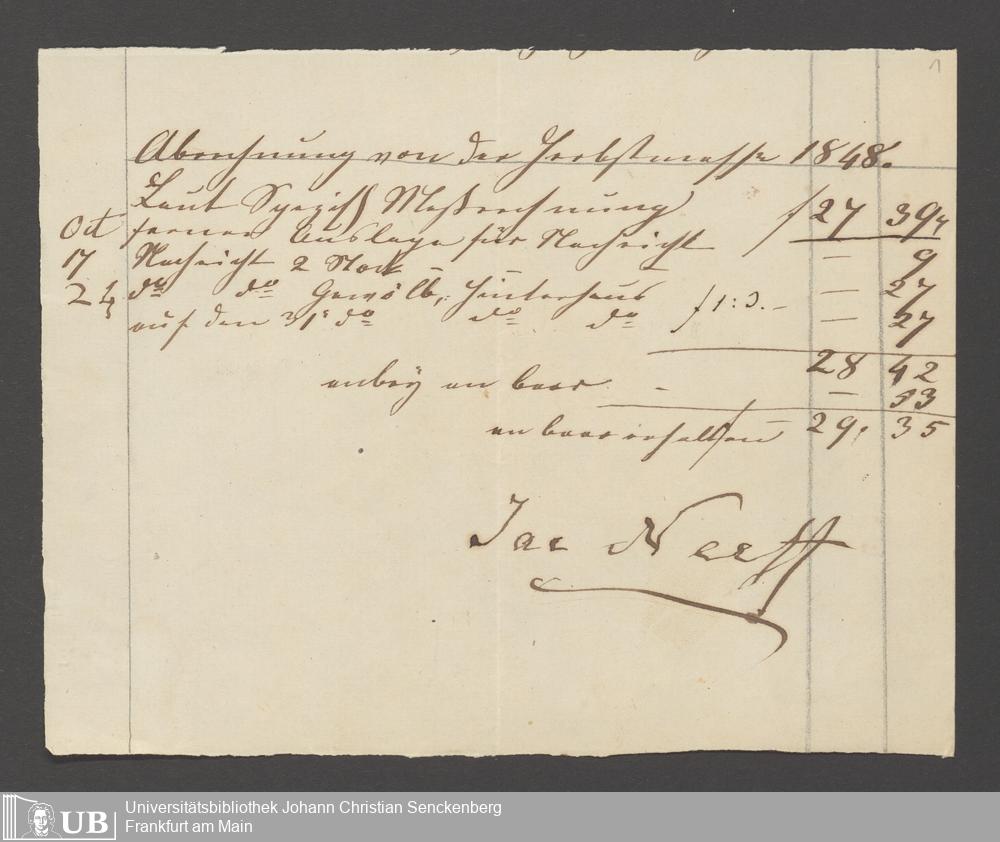 1
Abrechnung von der Herbstmesse 1848.
Laut Spezif Meßrechnung f 27 39
Oct ferner Auslage für Nachricht
17 Nachricht 2 Stock – – 9
24 do do Gewölb, Hinterhaus – 27
auf den 31 do do do f 1:3.– – 27
28 42
anbey an baar – – 53
an baar erhalten 29. 35
Jac Neeff
UB
Universitätsbibliothek Johann Christian Senckenberg
Frankfurt am Main